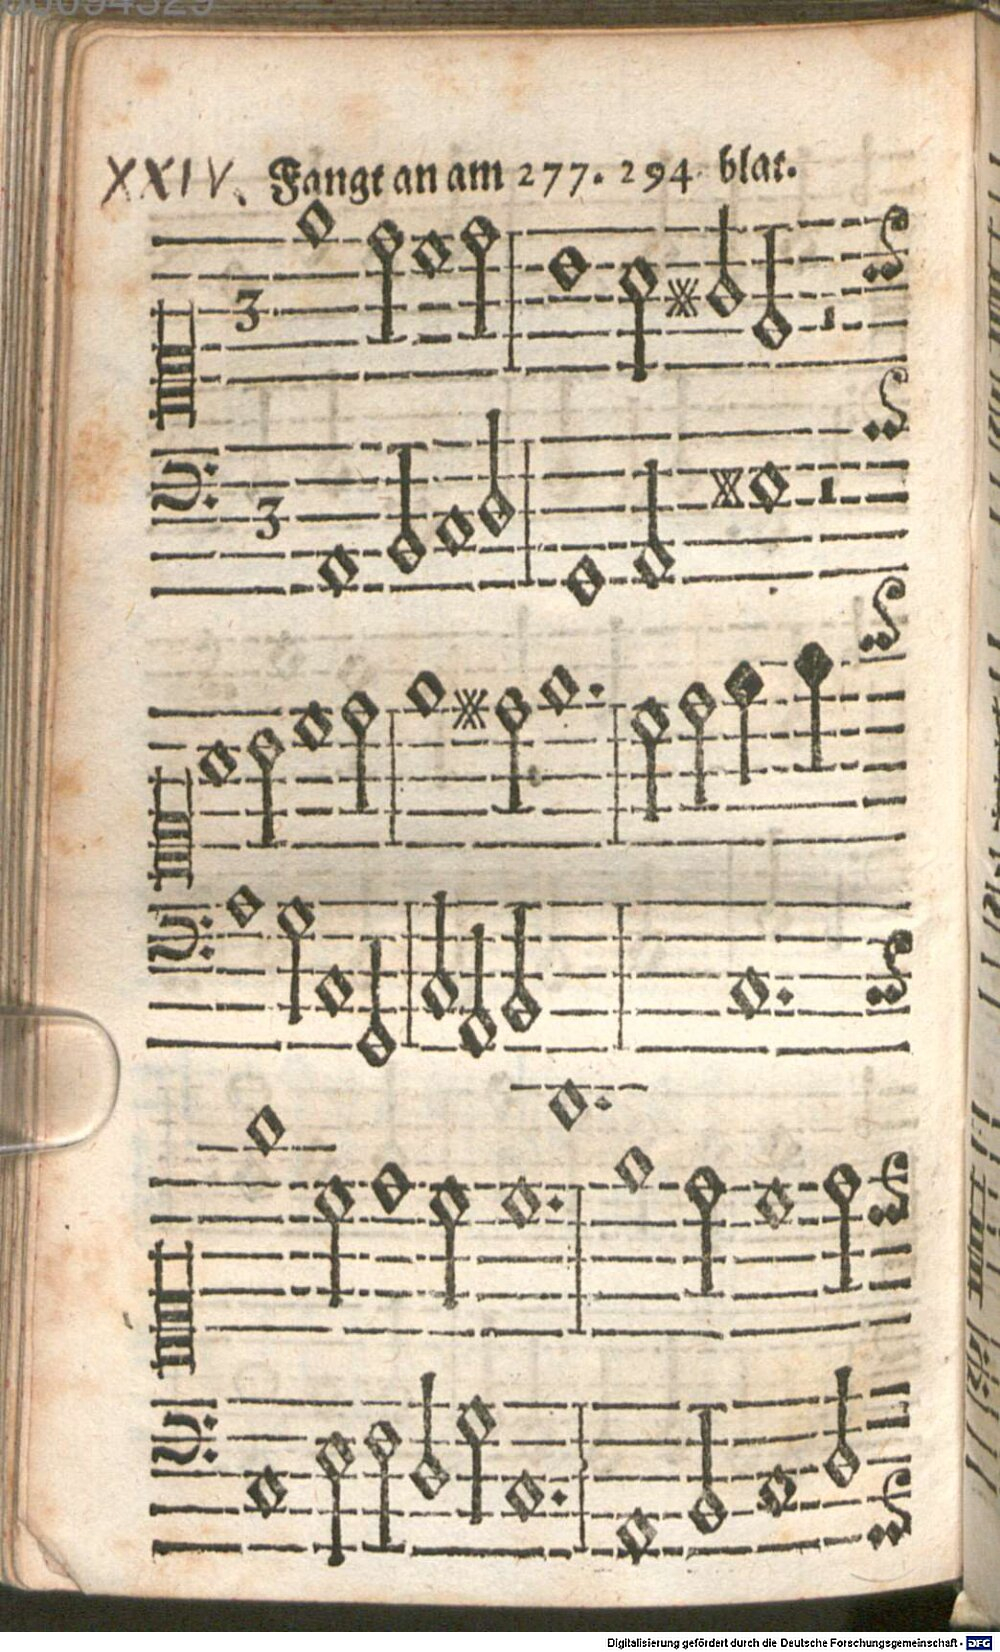 00094329
XXIV. Fangt an am 277. 294 blat.
3
3
Digitalisierung gefördert durch die Deutsche Forschungsgemeinschaft - DFG